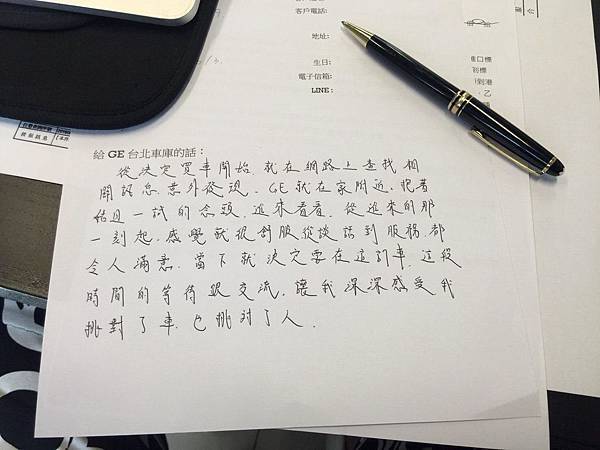 客戶電話:
地址:
生日:
電子信箱:
LINE:
給 GE 台北車庫的話:
從決定買車開始,就在網路上查找相
關訊息,意外發現,GE就在家附近,抱著
姑且一試的念頭,進來看看,從進來的那
一刻起,感覺就很舒服從談話到服務,都
令人滿意,當下就決定要在這引車,這段
時間的等待跟交流,讓我深深感受我
挑對了車,也挑對了人.